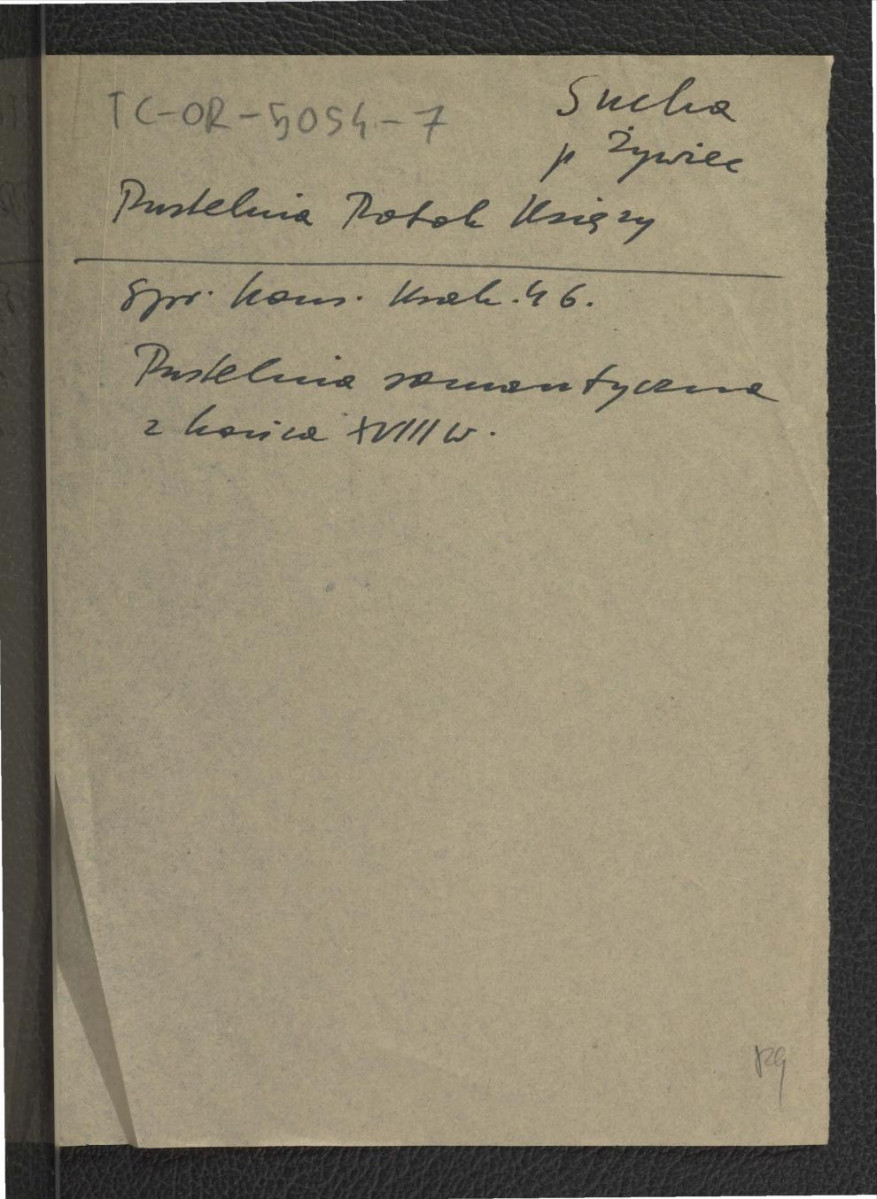 TC-OR-5054-7
Sucha
p Żywiec
Pustelnia Potok Księży
Spr. kons. Krak. 46.
Pustelnia romantyczna
z końca XVIII w.